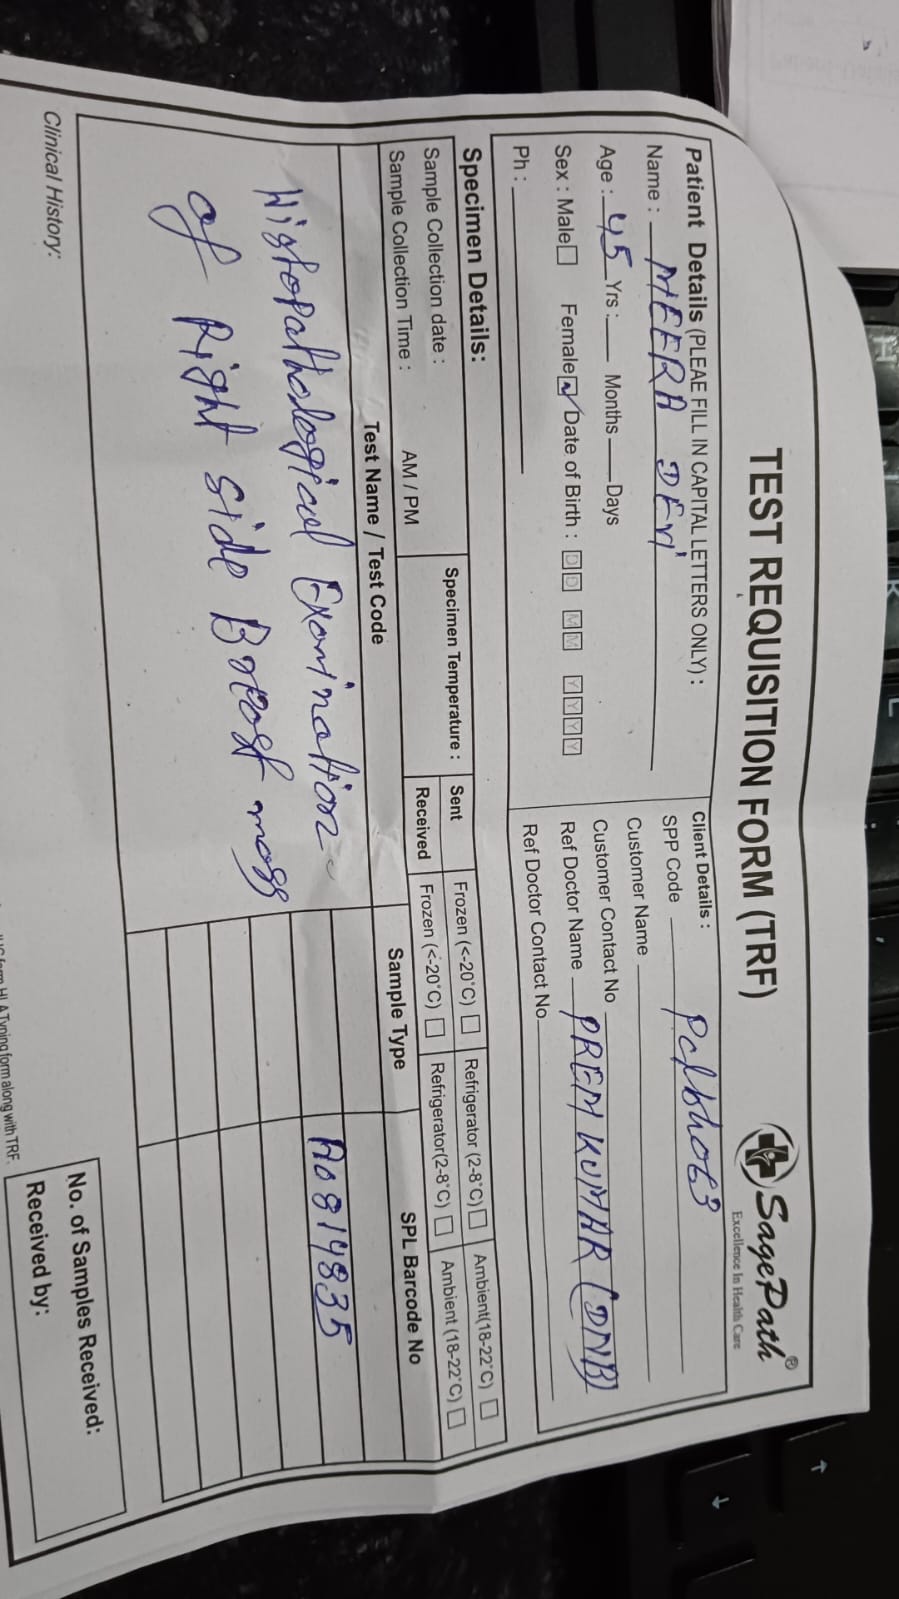 TEST REQUISITION FORM (TRF)
SagePath®
Excellence In Health Care
Patient Details (PLEAE FILL IN CAPITAL LETTERS ONLY) :
Name : MEERA DEVI
Age : 45 Yrs : Months Days
Sex : Male Female Date of Birth : D D M M Y Y Y Y
Ph :
Client Details :
SPP Code
Customer Name
Customer Contact No
Ref Doctor Name PREM KUMAR (DNB)
Ref Doctor Contact No
Specimen Details:
Sample Collection date :
Sample Collection Time : AM / PM
Specimen Temperature :
Sent Frozen (<-20°C) Refrigerator (2-8°C) Ambient(18-22°C)
Received Frozen (<-20°C) Refrigerator(2-8°C) Ambient (18-22°C)
Test Name / Test Code Sample Type SPL Barcode No
Histopathological Examination A0814835
of Right side Breast mass
Clinical History:
form HLA Typing form along with TRF.
No. of Samples Received:
Received by: